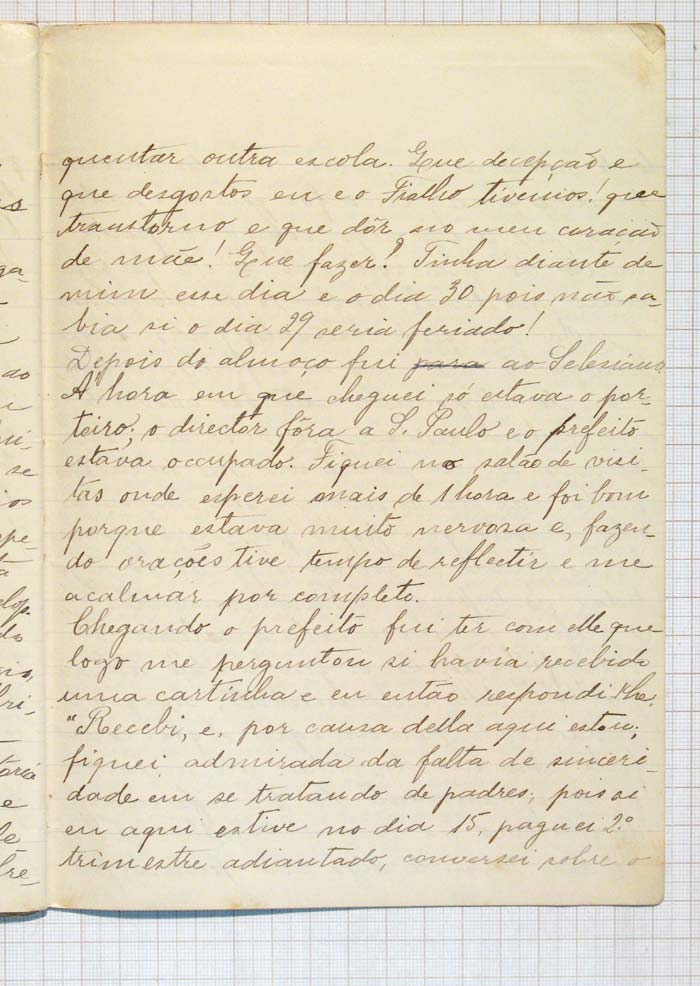 quentar outra escola. Que decepção e
que desgostos eu e o Fialho tivemos! que
transtorno e que dôr no meu coração
de mãe! Que fazer!? Tinha diante de
mim esse dia e o dia 30 pois não sa-
bia si o dia 29 seria feriado!
Depois do almoço fui para ao Selesiano.
A' hora em que cheguei só estava o por-
teiro; o director fôra a S. Paulo e o prefeito
estava occupado. Fiquei no salão de visi-
tas onde esperei mais de 1 hora e foi bom
porque estava muito nervosa e, fazen-
do orações tive tempo de reflectir e me
acalmar por completo.
Chegando o prefeito fui ter com elle que
logo me perguntou si havia recebido
uma cartinha e eu então respondi-lhe:
"Recebi, e, por causa della aqui estou;
fiquei admirada da falta de sinceri-
dade em se tratando de padres, pois si
eu aqui estive no dia 15, paguei 2º
trimestre adiantado, conversei sobre o